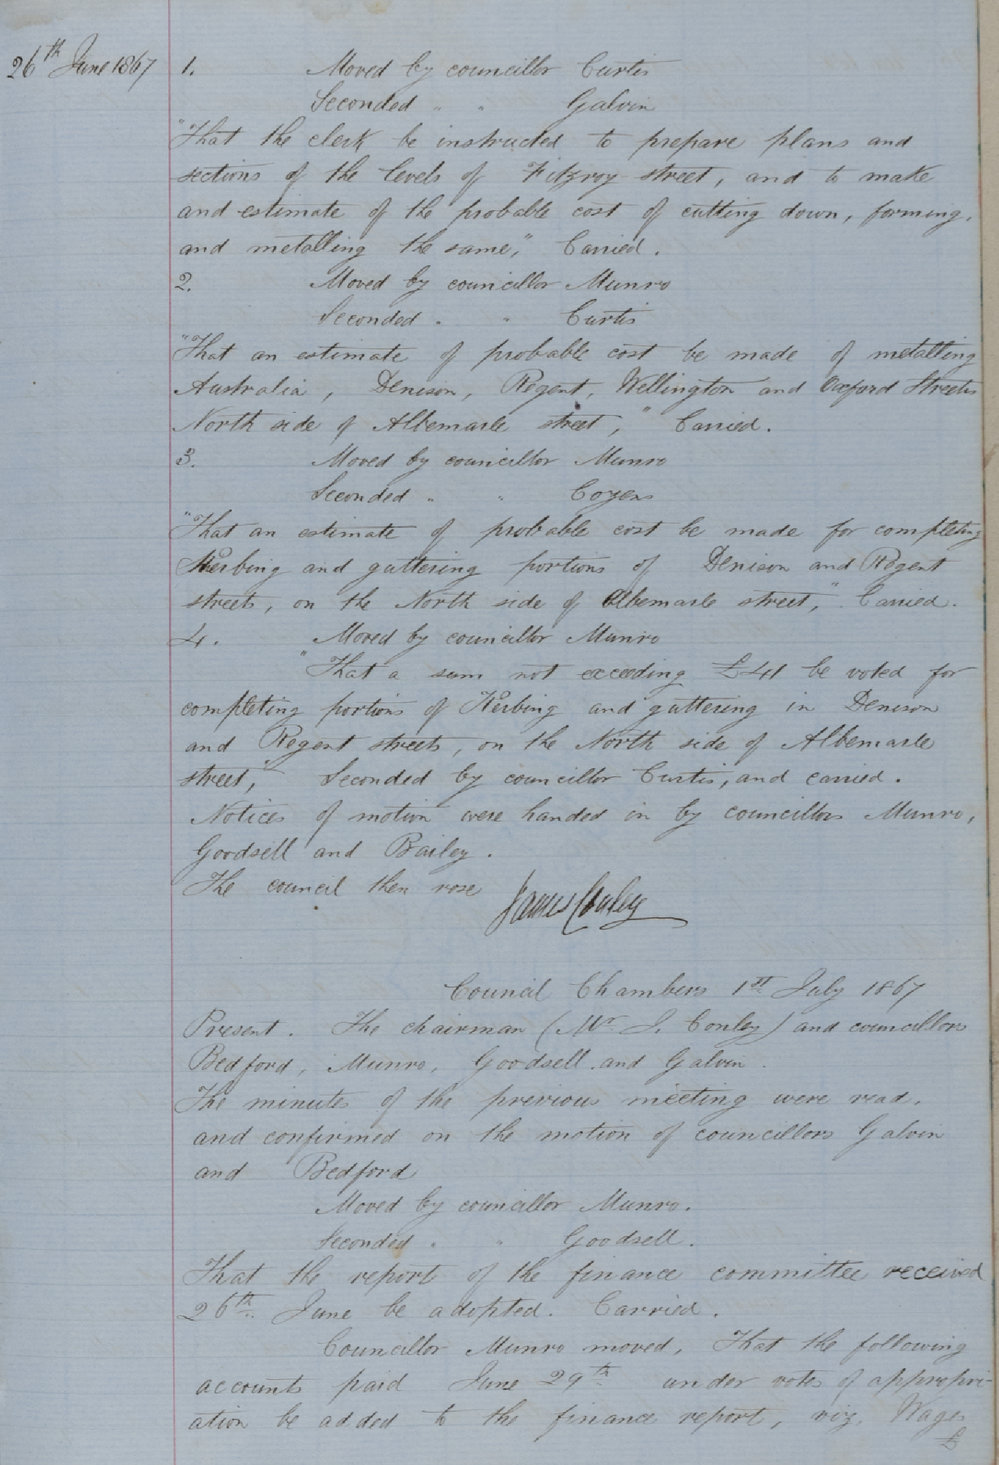 26th June 1867
1. Moved by councillor Curtis
Seconded " " Galvin
"That the clerk be instructed to prepare plans and
sections of the levels of Fitzroy street, and to make
and estimate of the probable cost of cutting down, forming,
and metalling the same," Carried.
2. Moved by councillor Munro
Seconded " " Curtis
"That an estimate of probable cost be made of metalling
Australia, Denison, Regent, Wellington and Oxford Streets
North side of Albemarle street," Carried.
3. Moved by councillor Munro
Seconded " "
"That an estimate of probable cost be made for completing
Kerbing and guttering portions of Denison and Regent
streets, on the North side of Albemarle street," Carried.
4. Moved by councillor Munro
"That a sum not exceeding £41 be voted for
completing portions of Kerbing and guttering in Denison
and Regent streets, on the North side of Albemarle
street," Seconded by councillor Curtis, and carried.
Notices of motion were handed in by councillors Munro,
Goodsell and Bailey.
The council then rose James Conley
Council Chambers 1st July 1867
Present. The chairman (Mr J. Conley) and councillors
Bedford, Munro, Goodsell and Galvin.
The minutes of the previous meeting were read,
and confirmed on the motion of councillors Galvin
and Bedford
Moved by councillor Munro.
Seconded " " Goodsell.
That the report of the finance committee received
26th June be adopted. Carried.
Councillor Munro moved, That the following
accounts paid June 29th under votes of appropri-
ation be added to the finance report, viz, Wages
£